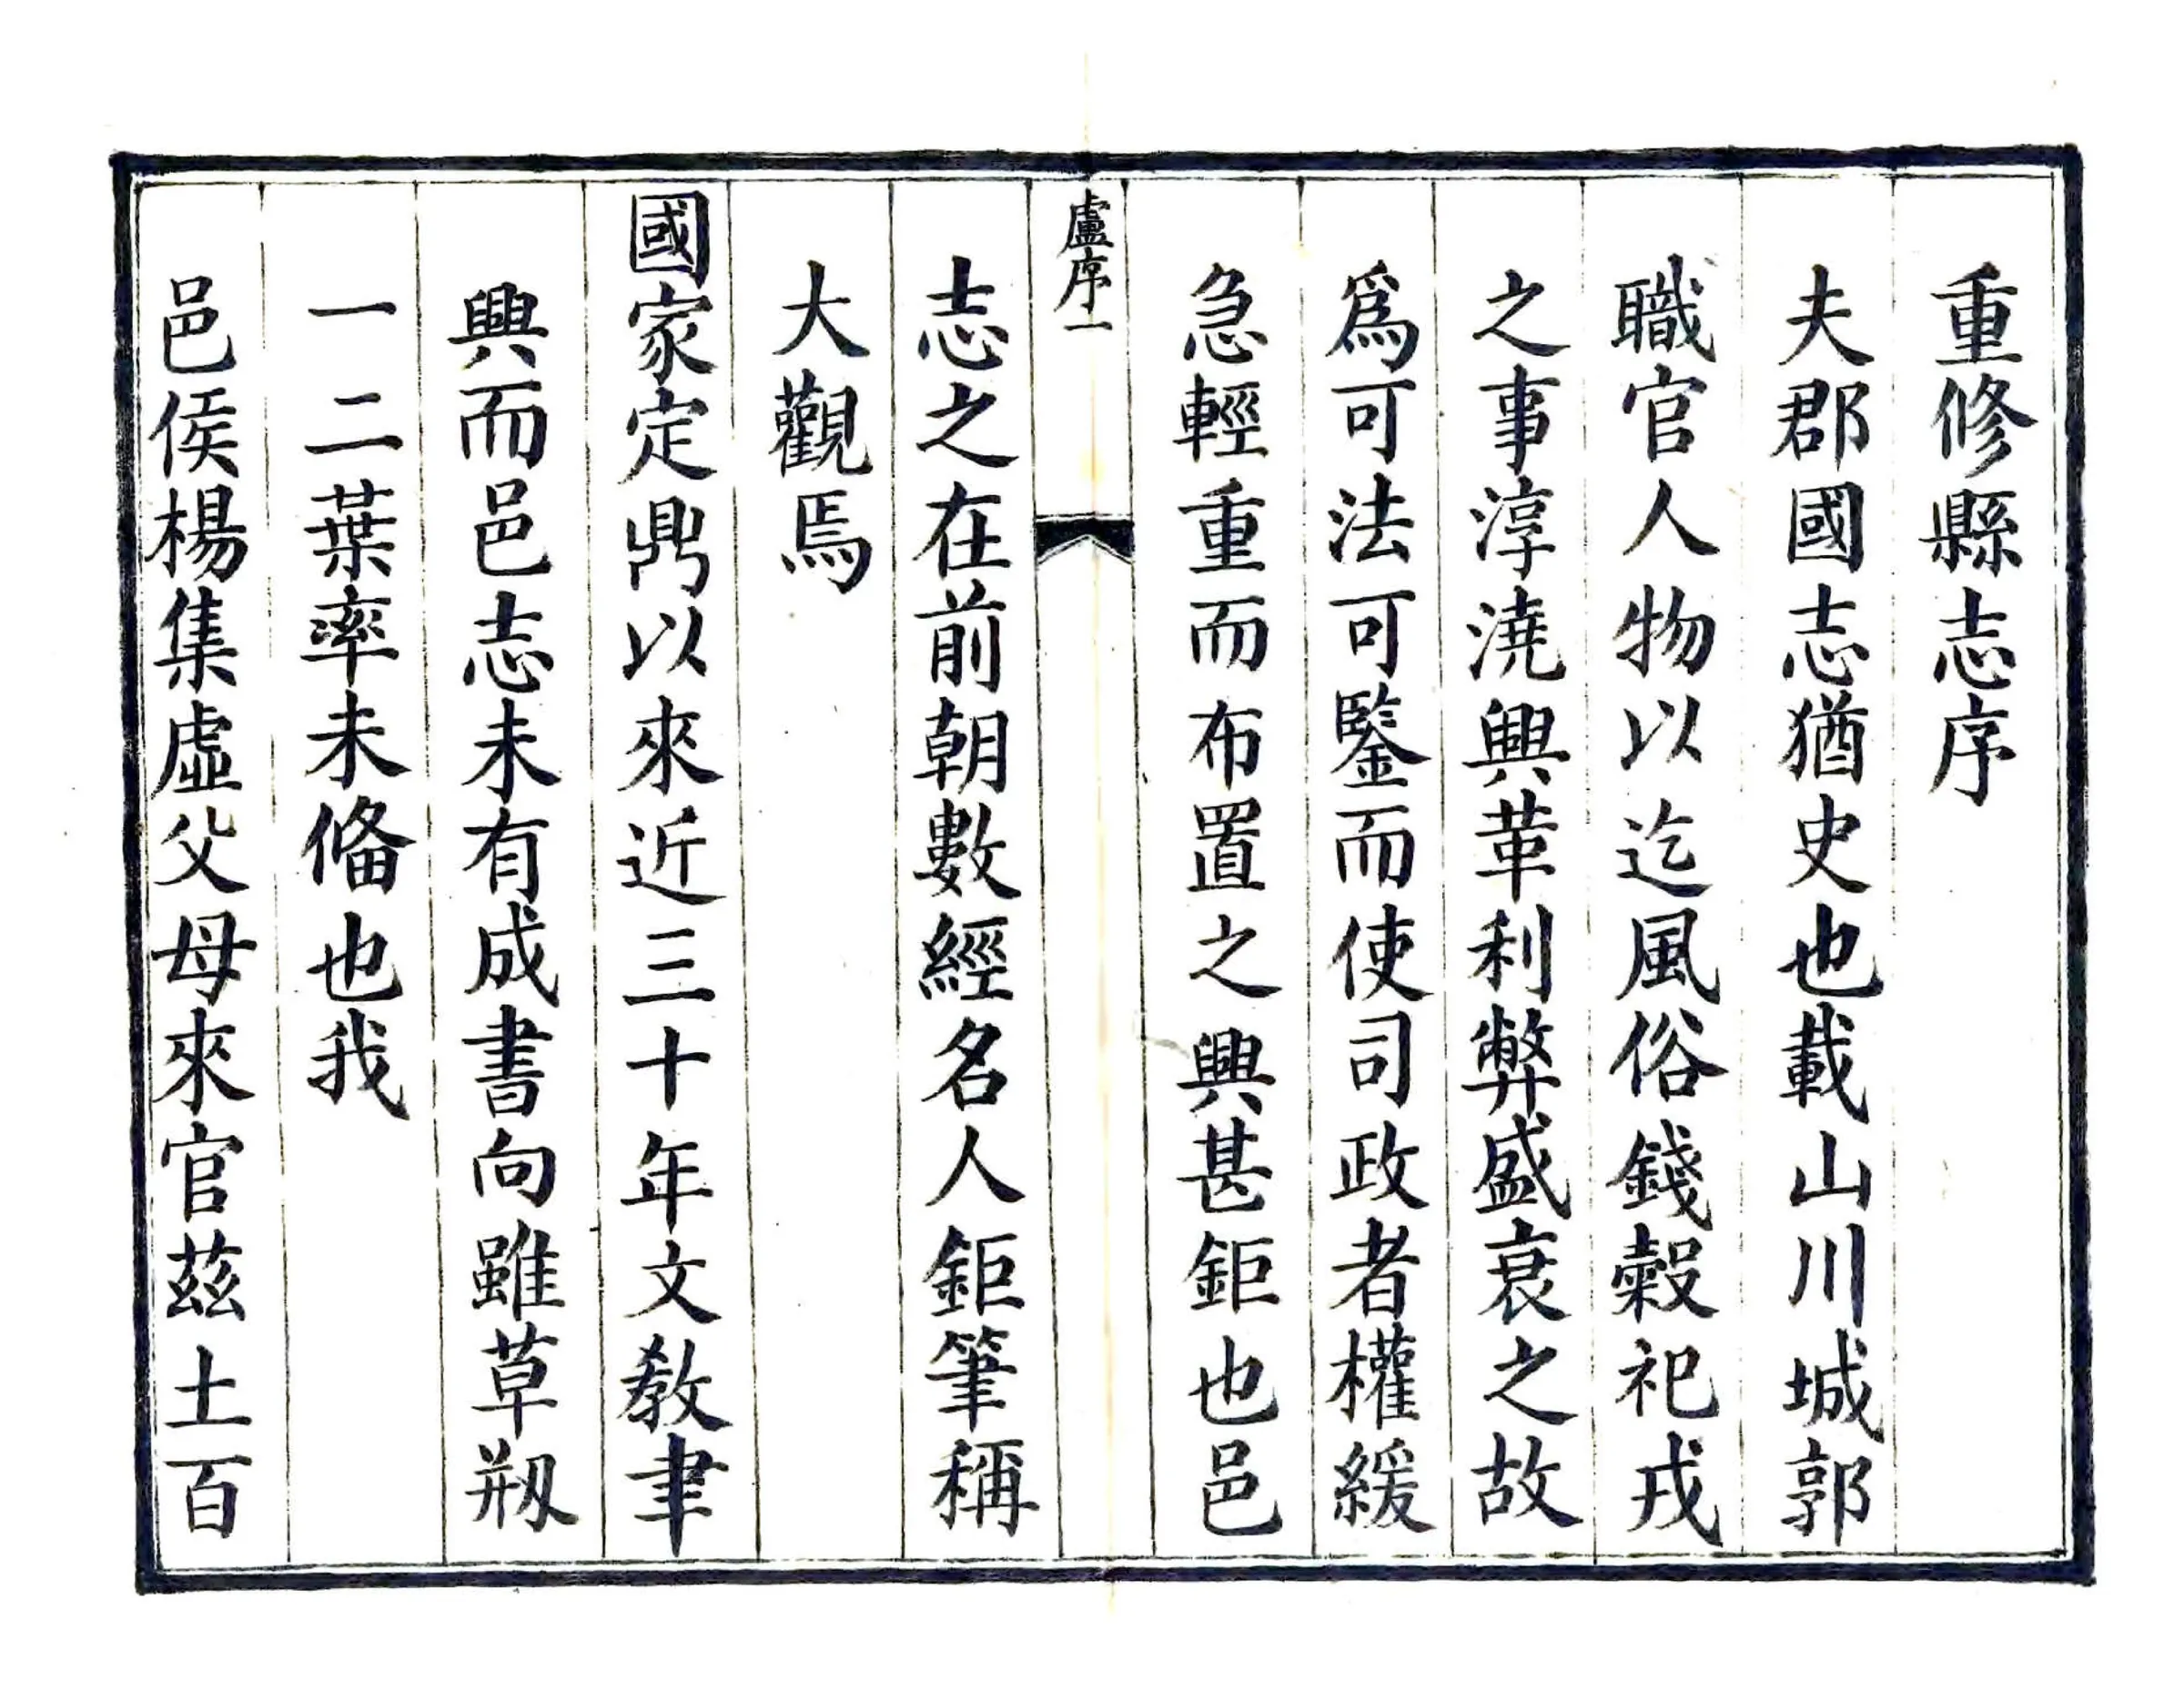 重修縣志序
夫郡國志猶史也載山川城郭
職官人物以迄風俗錢穀祀戎
之事淳澆興革利弊盛衰之故
爲可法可鑒而使司政者權緩
急輕重而布置之興甚鉅也邑
盧序一
志之在前朝數經名人鉅筆稱
大觀焉
國家定鼎以來近三十年文教聿
興而邑志未有成書向雖草剏
一二葉率未俻也我
邑侯楊集虛父母來官茲土百